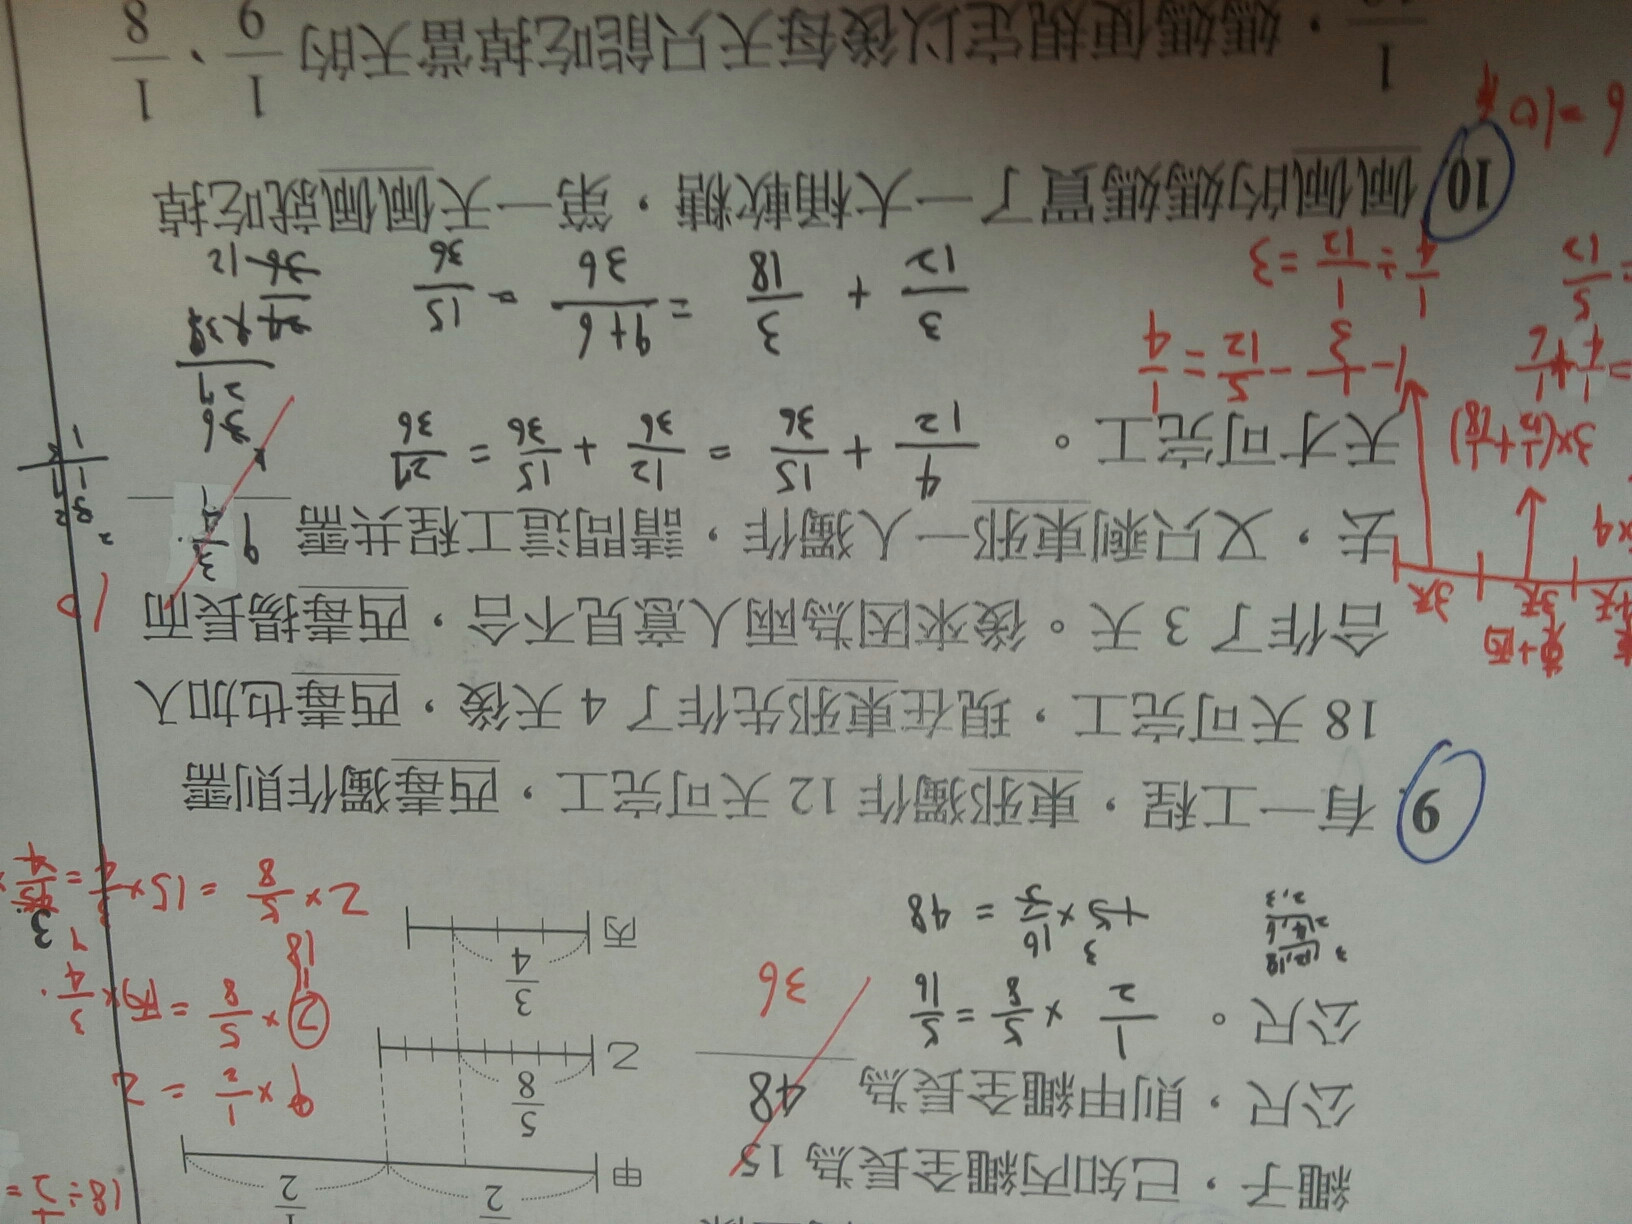 繩子，已知丙繩全長為 15
公尺，則甲繩全長為 48
公尺。
36
1/2 × 5/8 = 5/16
15 × 16/5 = 48
甲
1/2
乙
5/8
丙
3/4
18 ÷ 1/2 =
甲 × 1/2 = 乙
乙 × 5/8 = 丙 × 3/4
18
乙 × 5/8 = 15 × 3/4 = 45/4
9 有一工程，東邪獨作 12 天可完工，西毒獨作則需
18 天可完工，現在東邪先作了 4 天後，西毒也加入
合作了 3 天。後來因為兩人意見不合，西毒揚長而
去，又只剩東邪一人獨作，請問這工程共需 9 3/4
天才可完工。
10
4/12 + 15/36 = 12/36 + 15/36 = 27/36
3/12 + 3/18 = 9+6/36 = 15/36
東+西
3天
3天
3×(1/12+1/18)
= 1/4 + 1/6
= 5/12
1 - 1/3 - 5/12 = 1/4
1/4 ÷ 1/12 = 3
6 = 10天
10 佩佩的媽媽買了一大桶軟糖，第一天佩佩就吃掉
1/10，媽媽便規定以後每天只能吃掉當天的 1/9、1/8